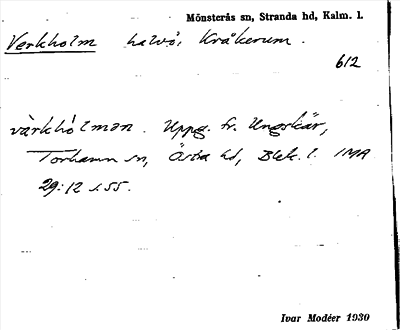 Mönsterås sn, Stranda hd, Kalm. l.
Verkholm halvö, Kråkerum.
612
vàrkhólmən. Uppg. fr. Ungskär,
Torhamn sn, Östra hd, Blek. l. IMA
29:12 s.55.
Ivar Modéer 1930